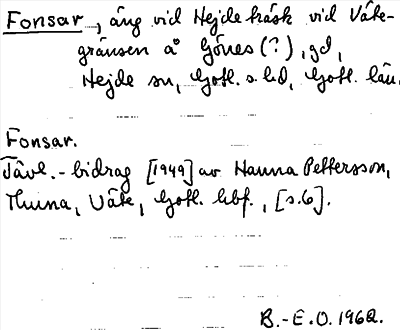 Fonsar, äng vid Hejde träsk vid Väte-
gränsen å Gönes (?), gd,
Hejde sn, Gotl. s. hd, Gotl. län.
Fonsar.
Tävl.-bidrag [1949] av Hanna Pettersson,
Thuna, Väte, Gotl. hbf., [s.6].
B.-E.O. 1962.